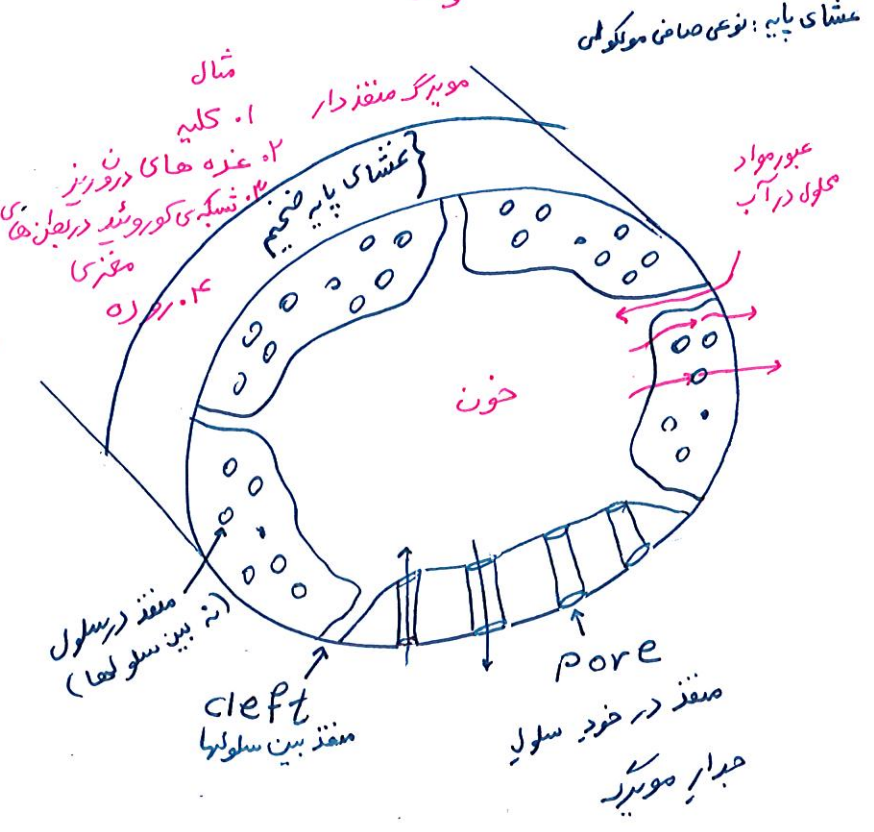 غشای پایه : نوعی صافی مولکولی
مویرگ منفذ دار
مثال
۱. کلیه
۲. غده های درون ریز
۳. شبکه ی کوروئید در بطن های
مغزی
۴. روده
غشای پایه ضخیم
عبور مواد
محلول در آب
خون
منفذ در سلول
(نه بین سلولها)
cleft
منفذ بین سلولها
pore
منفذ در خود سلول
جدار مویرگ